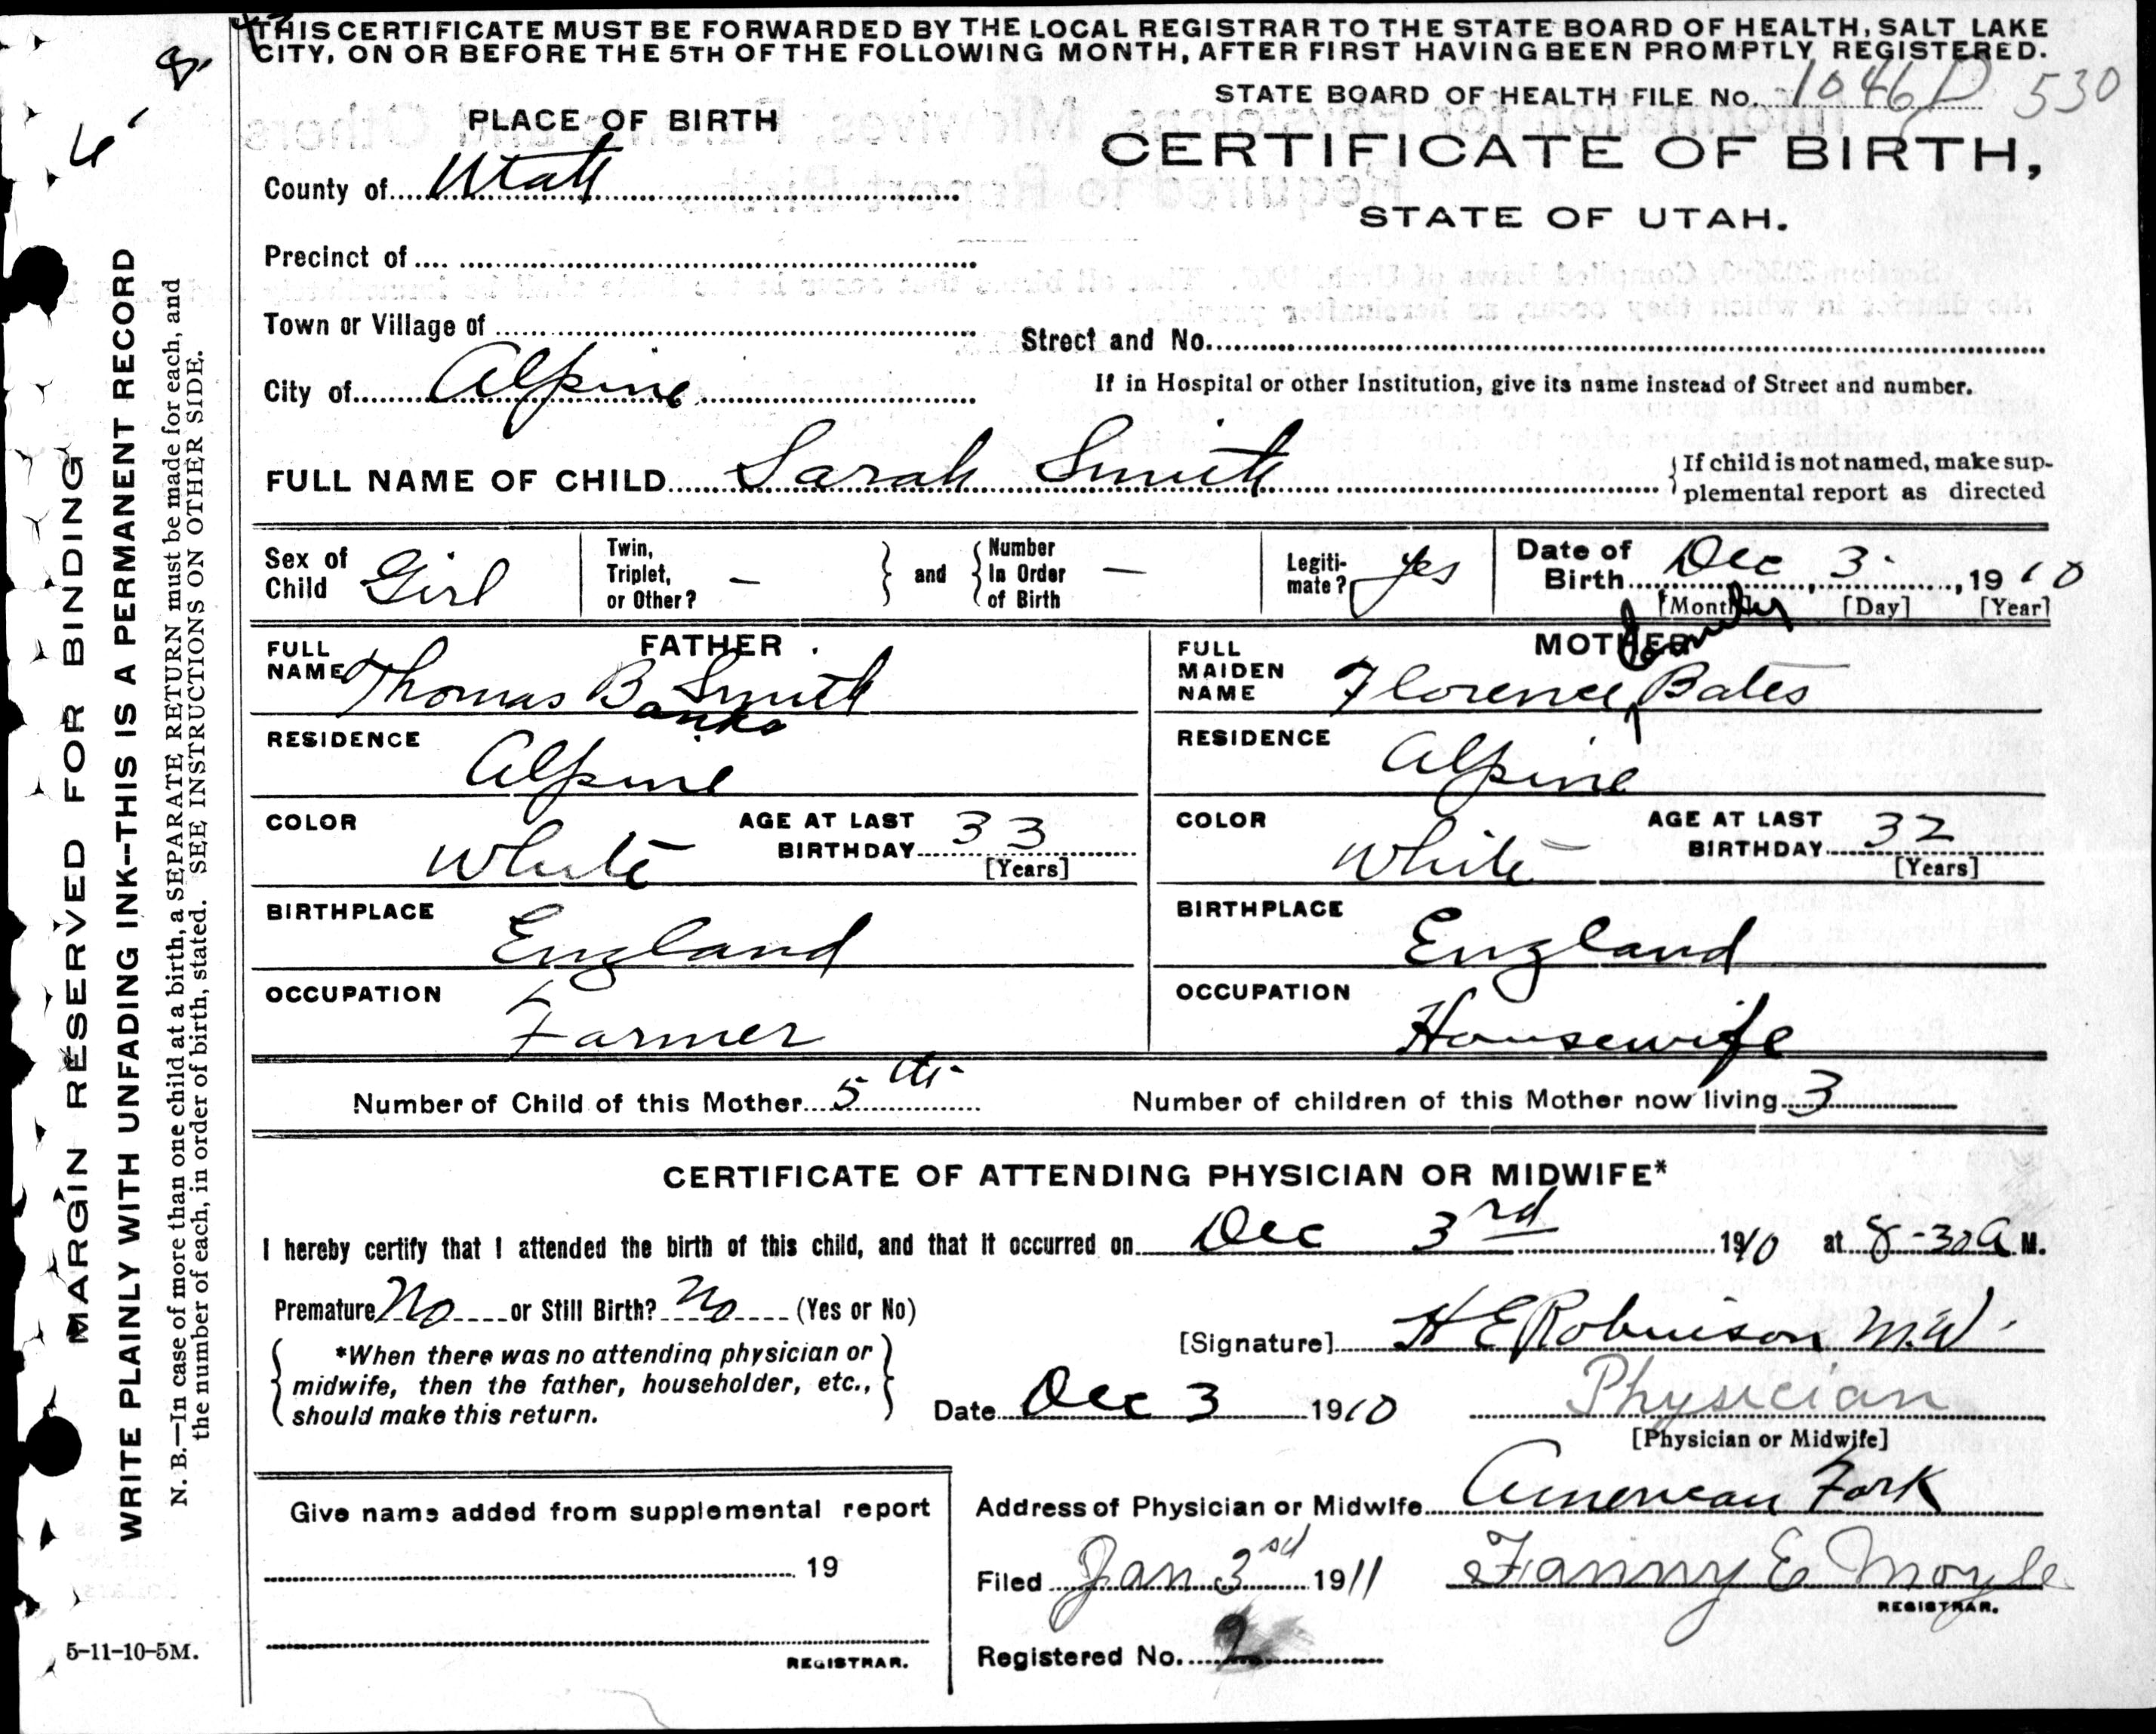 THIS CERTIFICATE MUST BE FORWARDED BY THE LOCAL REGISTRAR TO THE STATE BOARD OF HEALTH, SALT LAKE
CITY, ON OR BEFORE THE 5TH OF THE FOLLOWING MONTH, AFTER FIRST HAVING BEEN PROMPTLY REGISTERED.
STATE BOARD OF HEALTH FILE No. 1046 D 530
PLACE OF BIRTH
CERTIFICATE OF BIRTH,
STATE OF UTAH.
County of Utah
Precinct of
Town or Village of
Street and No.
City of Alpine
If in Hospital or other Institution, give its name instead of Street and number.
FULL NAME OF CHILD Sarah Smith
If child is not named, make sup-
plemental report as directed
Sex of Child Girl
Twin, Triplet, or Other? —
and
Number In Order of Birth —
Legiti-mate? Yes
Date of Birth Dec 3. , 1910
[Month] [Day] [Year]
FATHER
FULL NAME Thomas Banks Smith
RESIDENCE Alpine
COLOR White
AGE AT LAST BIRTHDAY 33
[Years]
BIRTHPLACE England
OCCUPATION Farmer
MOTHER
FULL MAIDEN NAME Florence Bates
RESIDENCE Alpine
COLOR White
AGE AT LAST BIRTHDAY 32
[Years]
BIRTHPLACE England
OCCUPATION Housewife
Number of Child of this Mother 5th
Number of children of this Mother now living 3
CERTIFICATE OF ATTENDING PHYSICIAN OR MIDWIFE*
I hereby certify that I attended the birth of this child, and that it occurred on Dec 3rd 1910 at 8-30 A M.
Premature No or Still Birth? No (Yes or No)
[Signature] H E Robinson M.W.
*When there was no attending physician or
midwife, then the father, householder, etc.,
should make this return.
Date Dec 3 1910
Physician
[Physician or Midwife]
Address of Physician or Midwife American Fork
Give name added from supplemental report
19
REGISTRAR.
Filed Jan 3rd 1911 Fanny E Moyle
REGISTRAR.
Registered No. 2
MARGIN RESERVED FOR BINDING
WRITE PLAINLY WITH UNFADING INK--THIS IS A PERMANENT RECORD
N. B.—In case of more than one child at a birth, a SEPARATE RETURN must be made for each, and
the number of each, in order of birth, stated. SEE INSTRUCTIONS ON OTHER SIDE.
5-11-10-5M.